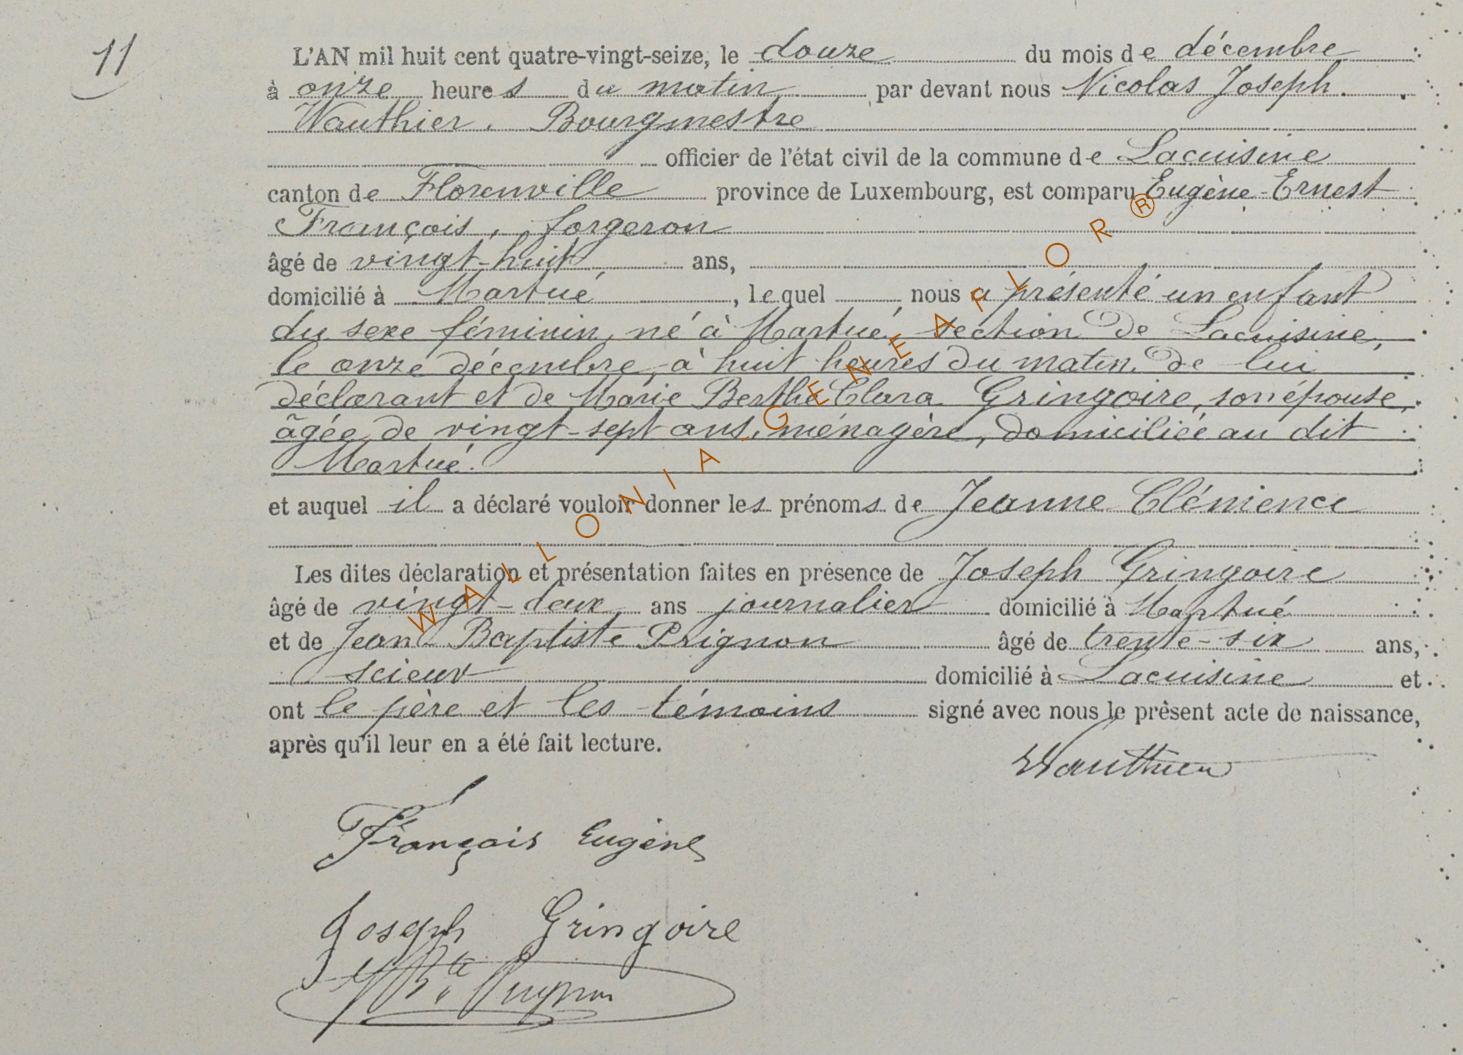 11
L'AN mil huit cent quatre-vingt-seize, le douze du mois de décembre
à onze heures du matin, par devant nous Nicolas Joseph
Wauthier, Bourgmestre
officier de l'état civil de la commune de Lacuisine
canton de Florenville province de Luxembourg, est comparu Eugène-Ernest
François, forgeron
âgé de vingt-huit ans,
domicilié à Martué, lequel nous a présenté un enfant
du sexe féminin, né à Martué, section de Lacuisine,
le onze décembre, à huit heures du matin, de lui
déclarant et de Marie Berthe Clara Gringoire, son épouse,
âgée de vingt-sept ans, ménagère, domiciliée au dit
Martué.
et auquel il a déclaré vouloir donner les prénoms de Jeanne Clémence
Les dites déclaration et présentation faites en présence de Joseph Gringoire
âgé de vingt-deux ans journalier domicilié à Martué
et de Jean Baptiste Prignon âgé de trente-six ans,
scieur domicilié à Lacuisine et
ont le père et les témoins signé avec nous le présent acte de naissance,
après qu'il leur en a été fait lecture.
Wauthier
François Eugène
Joseph Gringoire
J Bte Prignon
WALLONIA-GENEAFLOR®